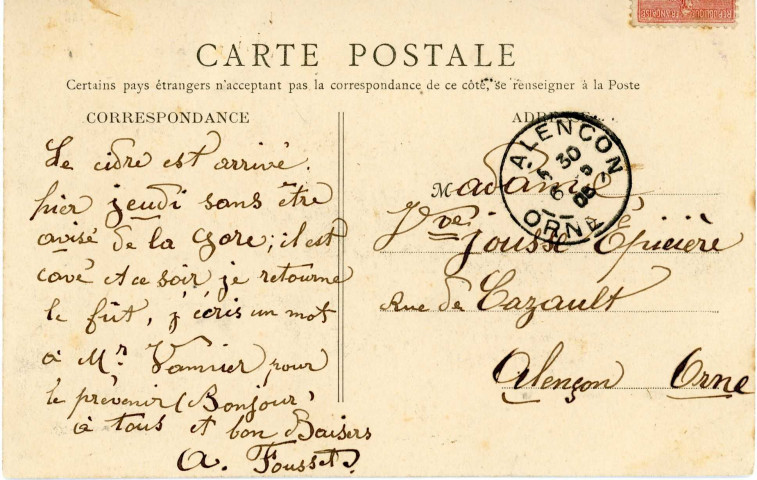 CARTE POSTALE
Certains pays étrangers n'acceptant pas la correspondance de ce côté, se renseigner à la Poste
CORRESPONDANCE
Le cidre est arrivé
hier jeudi sans être
avisé de la gare; il est
cavé et ce soir je retourne
le fût, j'écris un mot
à Mr. Vannier pour
le prévenir (Bonjour
à tous et bon Baisers
A. Fousset
ADRESSE
ALENCON
30
ORNE
Madame
Vve Jousse Épicière
Rue de Cazault
Alençon Orne